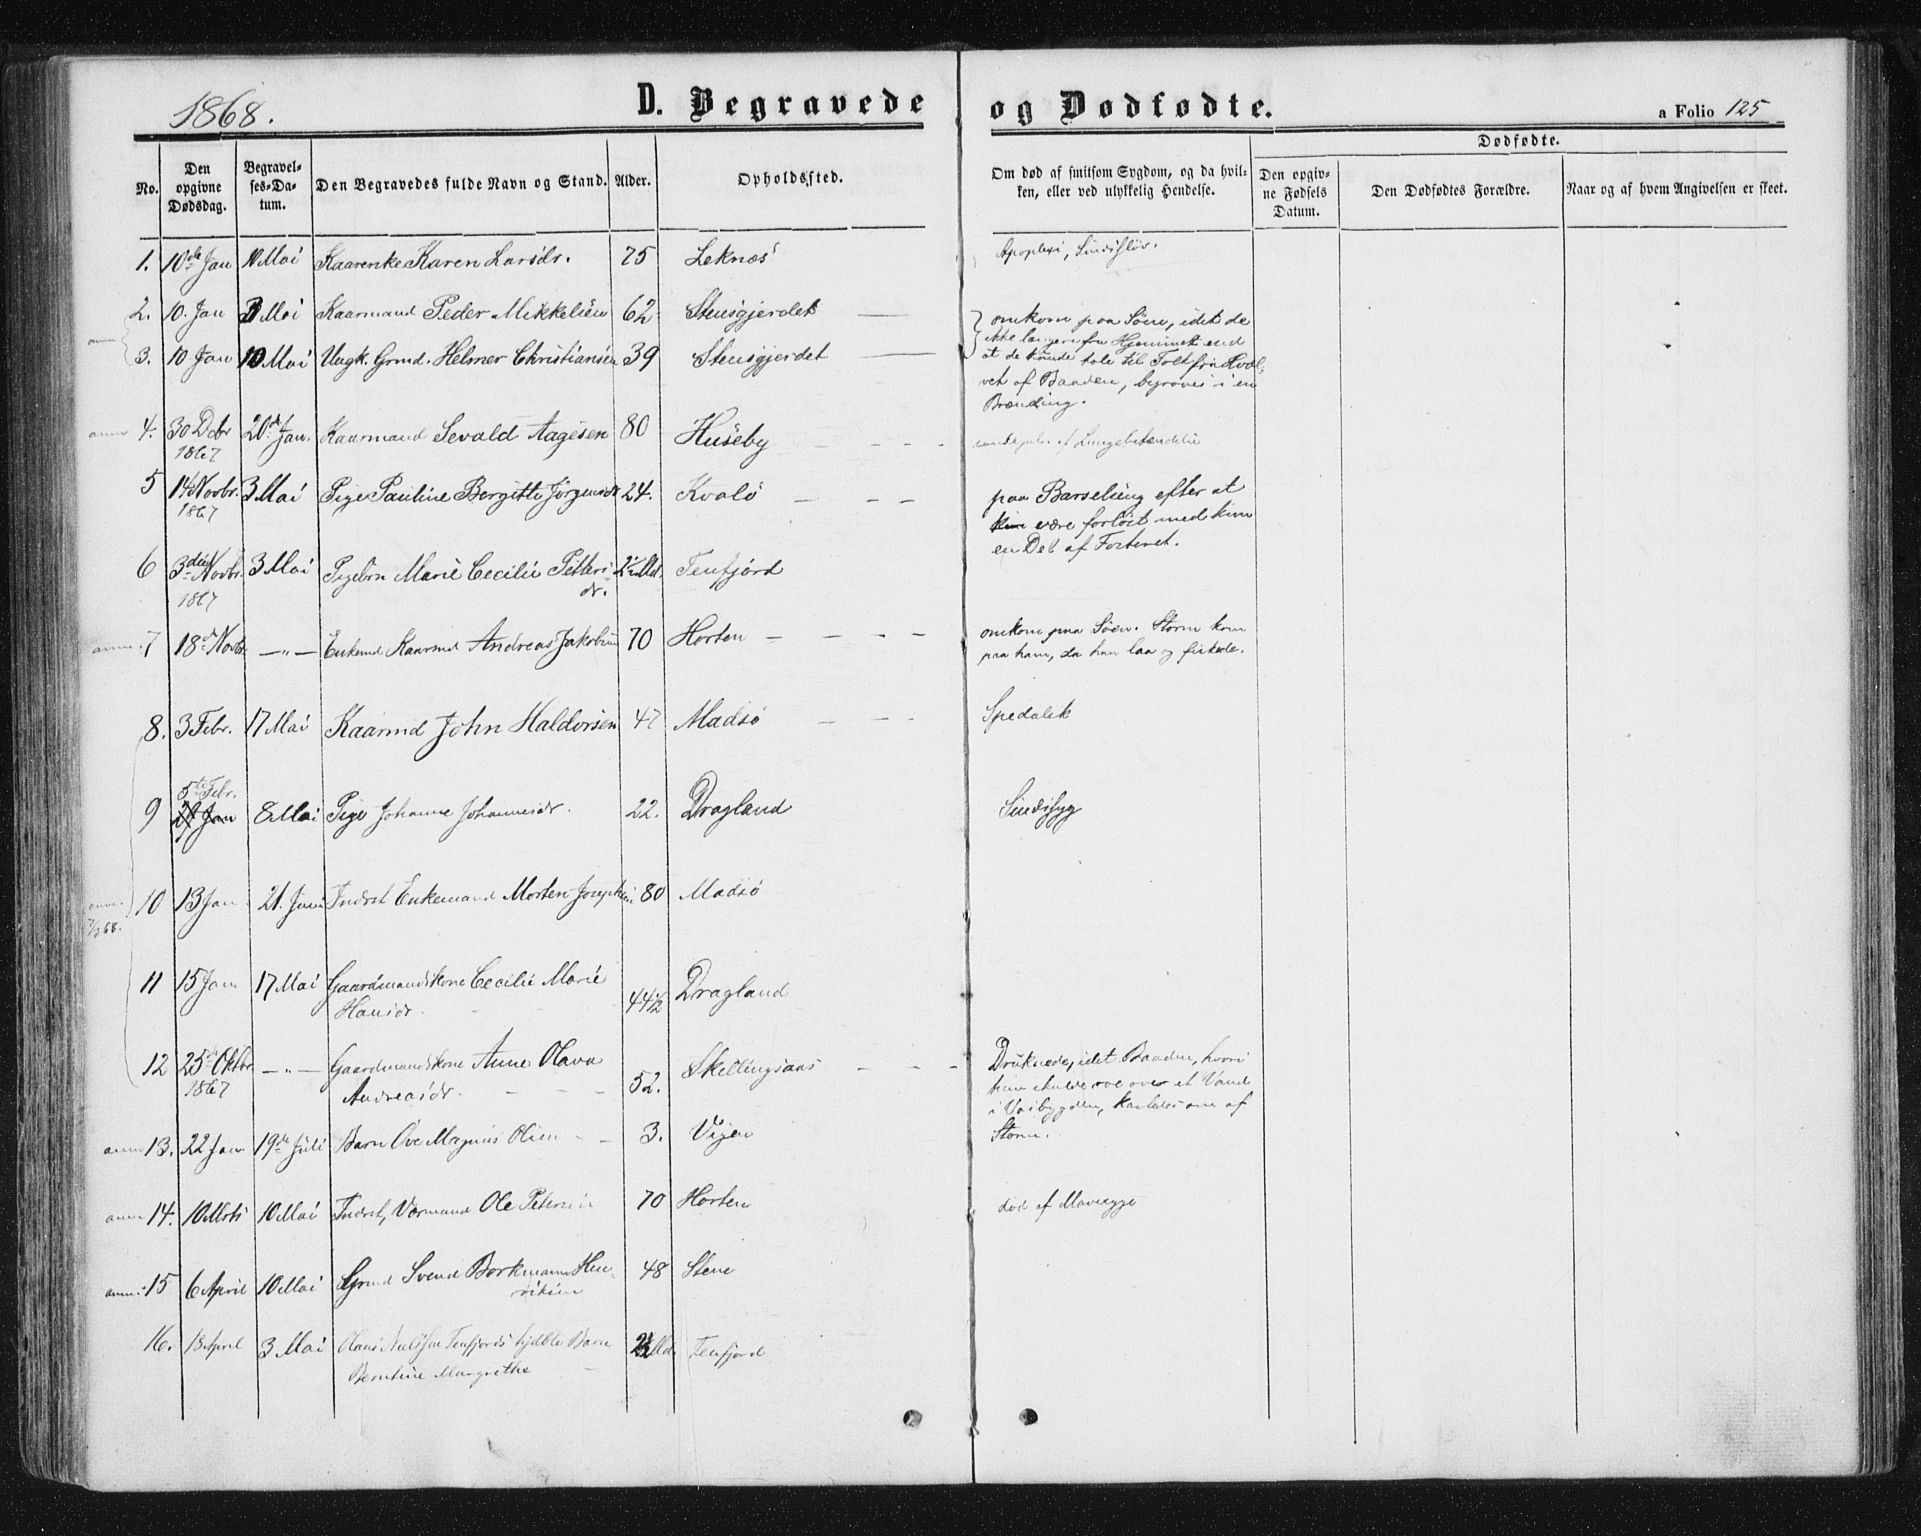 1868.
D. Begravede og Dødfødte.
a Folio 125
No.
Den opgivne Dødsdag.
Begravelses-Datum.
Den Begravedes fulde Navn og Stand.
Alder.
Opholdssted.
Om død af smitsom Sygdom, og da hvilken, eller ved ulykkelig Hendelse.
Dødfødte.
Den opgivne Fødsels Datum.
Den Dødfødtes Forældre.
Naar og af hvem Angivelsen er skeet.
1. 10de Jan 10 Mai Kaarenke Karen Larsdr. 75 Leknæs Apoplexi, Sindssløv.
2. 10. Jan 3 Mai Kaarmand Peder Mikkelsen 62 Stensgjerdet
anm 3. 10 Jan 10 Mai Ungk. Grmd. Helmer Christiansen 39 Stensgjerdet
omkom paa Søen, idet de
ikke længere fra Hjemmet end
at de kunde tale til Folk fra Hvæl-
vet af Baaden, begroves i en
Brænding.
anm 4. 30 Dcbr 1867 20de Jan. Kaarmand Sevald Aagesen 80 Huseby
af Lungebetændelse
5 14 Novbr. 1867 3 Mai Pige Pauline Bergitte Jørgensdr 24. Kvalø
paa Barselseng efter at
være forløst med kun
en Del af Fosteret.
6 3die Novbr. 1867 3 Mai Pigebrn Marie Cecilie Petters-
dr. 2½ Md. Tenfjord
anm. 7 18de Novbr. —„— Enkemd Kaarmd Andreas Jakobsen 70 Horten
omkom paa Søen. Storm kom
paa ham, da han laa og fiskede.
8. 3 Febr. 17 Mai Kaarmd John Haldorsen 47 Madsø Spedalsk
5te Febr.
9 8 Mai Pige Johanne Johannesdr. 22. Dragland Sindssyg
anm. 7/3 68. 10 13 Jan 21. Juni Inderst Enkemand Morten Josephsen 80 Madsø
11 15 Jan 17 Mai Gaardmandskone Cecilie Marie
Hansdr. 44½ Dragland
12 25de Oktbr 1867 —„— Gaardmandskone Anne Olava
Andreasdr. 52. Skellingsaas
Druknede, idet Baaden, hvori
hun skulde roe over et Vand
i Vaibygden, kastedes om af
Storm.
anm 13. 22 Jan 19de Juli Barn Ove Magnus Olsen 3. Vigen
anm 14. 10 Mrts 10 Mai Inderst, Værmand Ole Petersen 70 Horten død af Mavesyge
anm. 15 6 April 10 Mai Grmd Svend Borkmann Hen-
riksen 48 Stene
16. 18 April 3 Mai Olaus Tenfjords Barn
Berntine Margrethe Md. Tenfjord